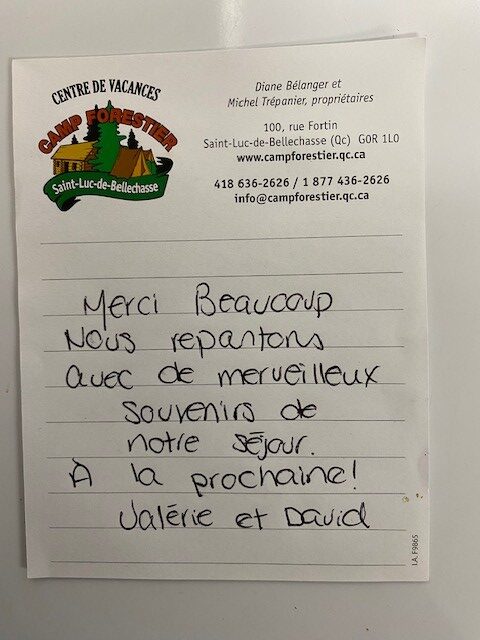 CENTRE DE VACANCES
CAMP FORESTIER
Saint-Luc-de-Bellechasse
Diane Bélanger et
Michel Trépanier, propriétaires
100, rue Fortin
Saint-Luc-de-Bellechasse (Qc) G0R 1L0
www.campforestier.qc.ca
418 636-2626 / 1 877 436-2626
info@campforestier.qc.ca
Merci Beaucoup
Nous repartons
avec de merveilleux
souvenirs de
notre séjour.
À la prochaine!
Valérie et David
I.A. F9865